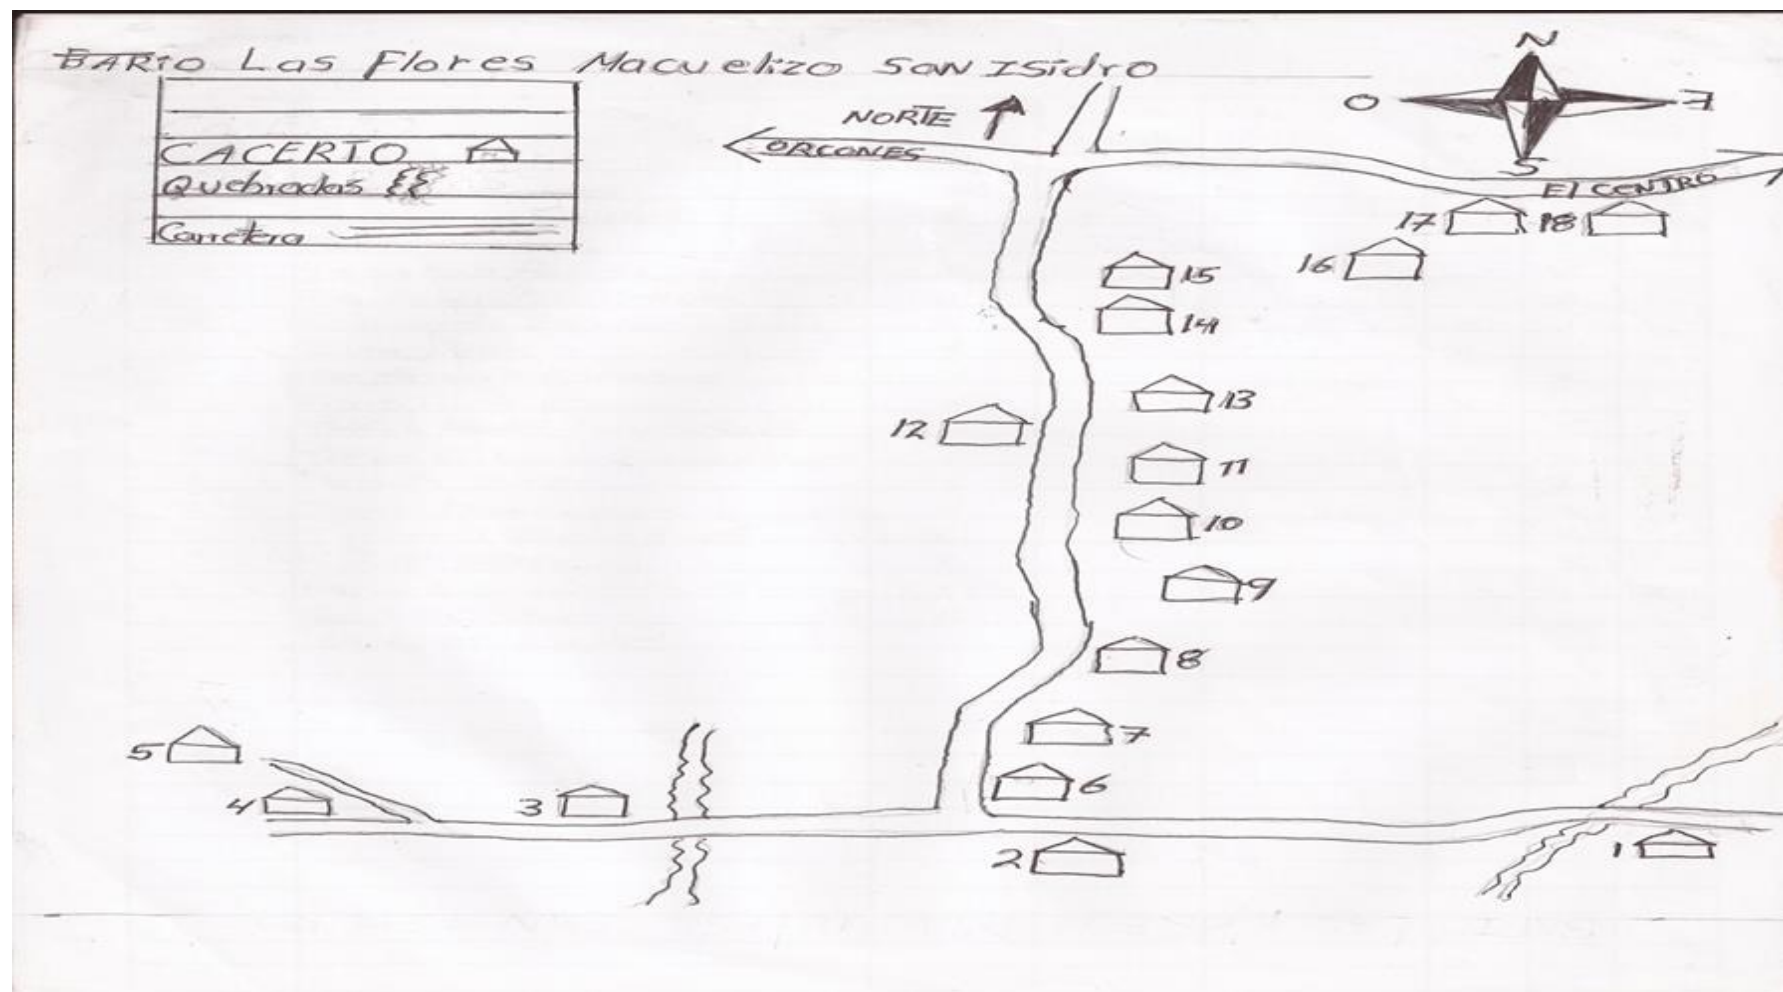 BARIO Las Flores Macuelizo SAN ISidro
N
O E
S
CACERIO
Quebradas
Carretera
NORTE
ORCONES
El CENTRO
17 18
16
15
14
13
12
11
10
9
8
7
6
5
4
3
2
1